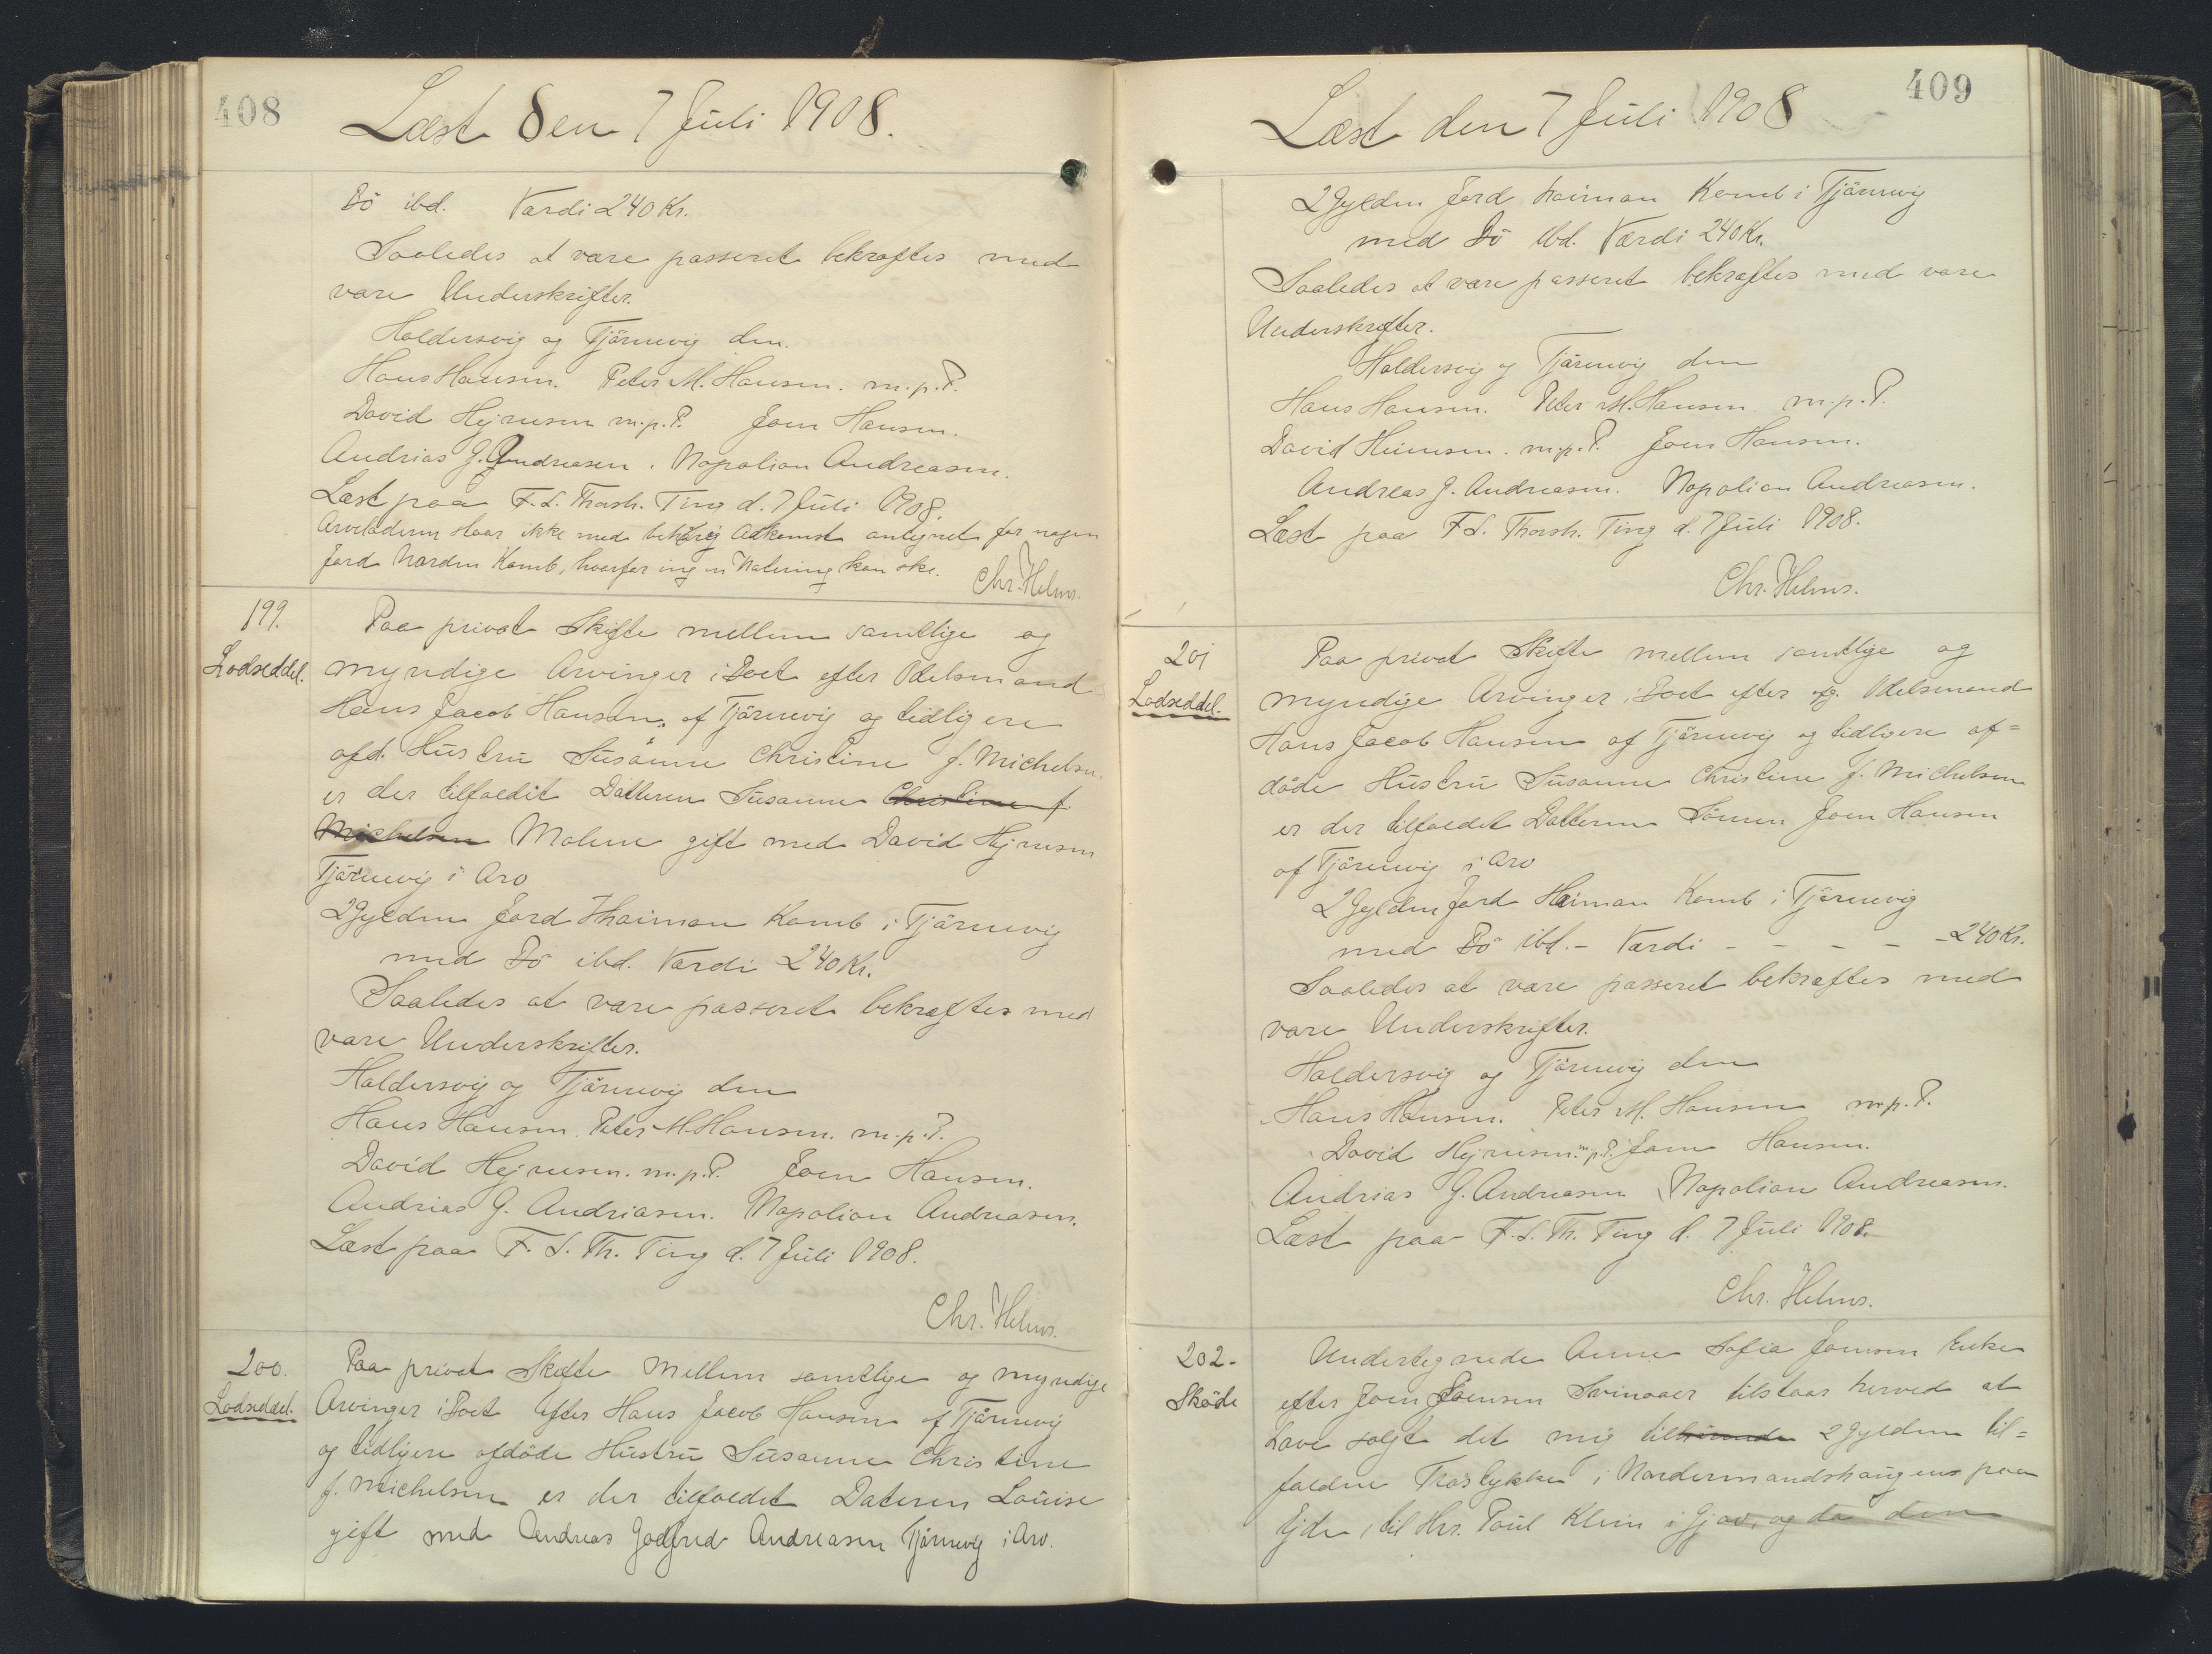 408
Læst Den 7 Juli 1908.
Bö ibd. Værdi 240 Kr.
Saaledes at være passeret bekræftes med
vore Underskrifter.
Haldersvig og Tjörnevig den.
Hans Hansen. Peter M. Hansen. m.p.P.
David Hejnesen m.p.P. Joen Hansen.
Andrias J. Andreasen. Napolion Andreasen.
Læst paa F. S. Thorsh. Ting d. 7 Juli 1908.
Arveladeren staar ikke med behörig Adkomst antegnet for nogen
Jord Norden Kamb, hvorfor ingen Notering kan ske. Chr. Helms.
199.
Lodseddel.
Paa privat Skifte mellem samtlige og
myndige Arvinger i Boet efter Odelsmand
Hans Jacob Hansen, af Tjörnevig og tidligere
afd. Hustru Susanne Christine f. Michelsen
er der tilfaldit Datteren Susanne Christine f.
Michelsen Malene gift med David Hejnesen
Tjörnevig i Arv
2 Gylden Jord Hhaiman Kamb i Tjörnevig
med Bö ibd. Værdi 240 Kr.
Saaledes at være passeret bekræftes med
vore Underskrifter.
Haldersvig og Tjörnevig den
Hans Hansen. Peter M. Hansen. m.p.P.
David Hejnesen. m.p.P. Joen Hansen.
Andrias G. Andriasen. Napolion Andreasen.
Læst paa F. S. Th. Ting d. 7 Juli 1908.
Chr. Helms.
200.
Lodseddel.
Paa privat Skifte Mellem samtlige og myndige
Arvinger i Boet efter Hans Jacob Hansen af Tjörnevig
og tidligere afdöde Hustru Susanne Christine
f. Michelsen er der tilfaldet Dateren Louise
gift med Andreas Godfred Andreasen Tjörnevig i Arv.
409
Læst den 7 Juli 1908
2 Gylden Jord haiman Kamb i Tjörnevig
med Bö ibd. Værdi 240 Kr.
Saaledes at være passeret bekræftes med vore
Underskrifter.
Haldersvig og Tjörnevig den
Hans Hansen. Peter M. Hansen m.p.P.
David Heinesen. m.p.P. Joen Hansen.
Andreas J. Andreasen. Napolion Andreasen.
Læst paa F. S. Thorsh. Ting d. 7 Juli 1908.
Chr. Helms.
201
Lodseddel.
Paa privat Skifte mellem samtlige og
myndige Arvinger i Boet efter og. Odelsmand
Hans Jacob Hansen af Tjörnevig og tidligere af=
döde Hustru Susanne Christine f. Michelsen
er der tilfaldet Datteren Sönnen Joen Hansen
af Tjörnevig i Arv
2 Gylden Jord Haiman Kamb i Tjörnevig
med Bö ibd. - Værdi - - - - - 240 Kr.
Saaledes at være passeret bekræftes med
vore Underskrifter.
Haldersvig og Tjörnevig den
Hans Hansen. Peter M. Hansen m.p.P.
David Hejnesen. m.p.P. Joen Hansen.
Andrias G. Andreasen Napolion Andreasen.
Læst paa F. S. Th. Ting d. 7 Juli 1908.
Chr. Helms.
202.
Sköde
Undertegnede Anne Sofia Joensen Enke
efter Joen Joensen Svinaaer tilstaar herved at
have solgt det mig tilhörende 2 Gylden til=
faldne Træstykke i Nordermandshaugens paa
Ejde, til Hr. Poul Klein i Gjov, og da den